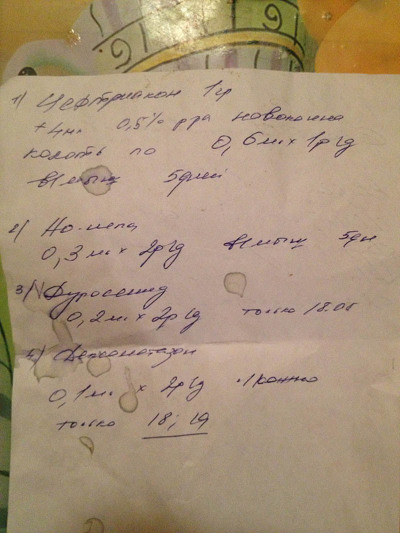 1) Цефтриаксон 1гр
+ 4мл 0,5% р-ра новокаина
колоть по 0,6 мл х 1р/д
в/мышц 5дней
2) Но-шпа
0,3 мл х 2р/д в/мышц 5дн
3) Фуросемид
0,2мл х 2р/д только 18.06
4) Дексаметазон
0,1мл х 2р/д п/кожно
только 18; 19